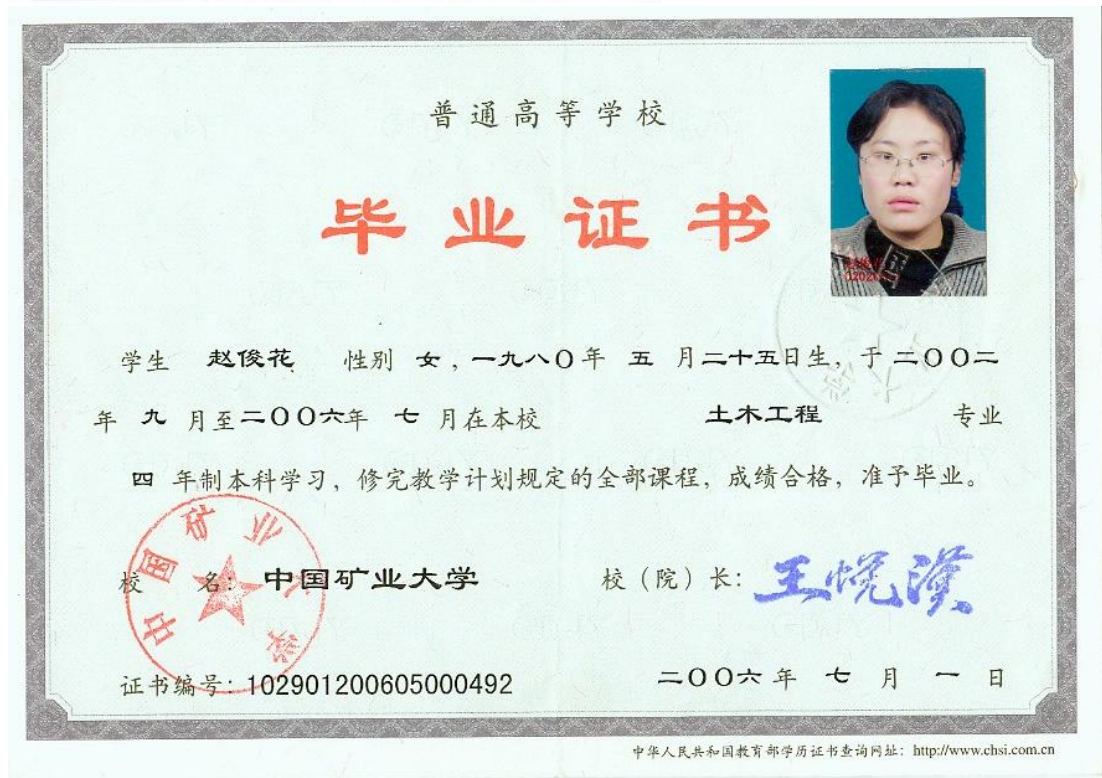 普通高等学校
毕业证书
学生 赵俊花 性别 女，一九八〇年 五 月二十五日生，于 二〇〇二
年 九 月至二〇〇六年 七 月在本校 土木工程 专业
四 年制本科学习，修完教学计划规定的全部课程，成绩合格，准予毕业。
中国矿业大学
校 名：中国矿业大学 校（院）长：王悦汉
证书编号：102901200605000492 二〇〇六年 七 月 一 日
中华人民共和国教育部学历证书查询网址：http://www.chsi.com.cn